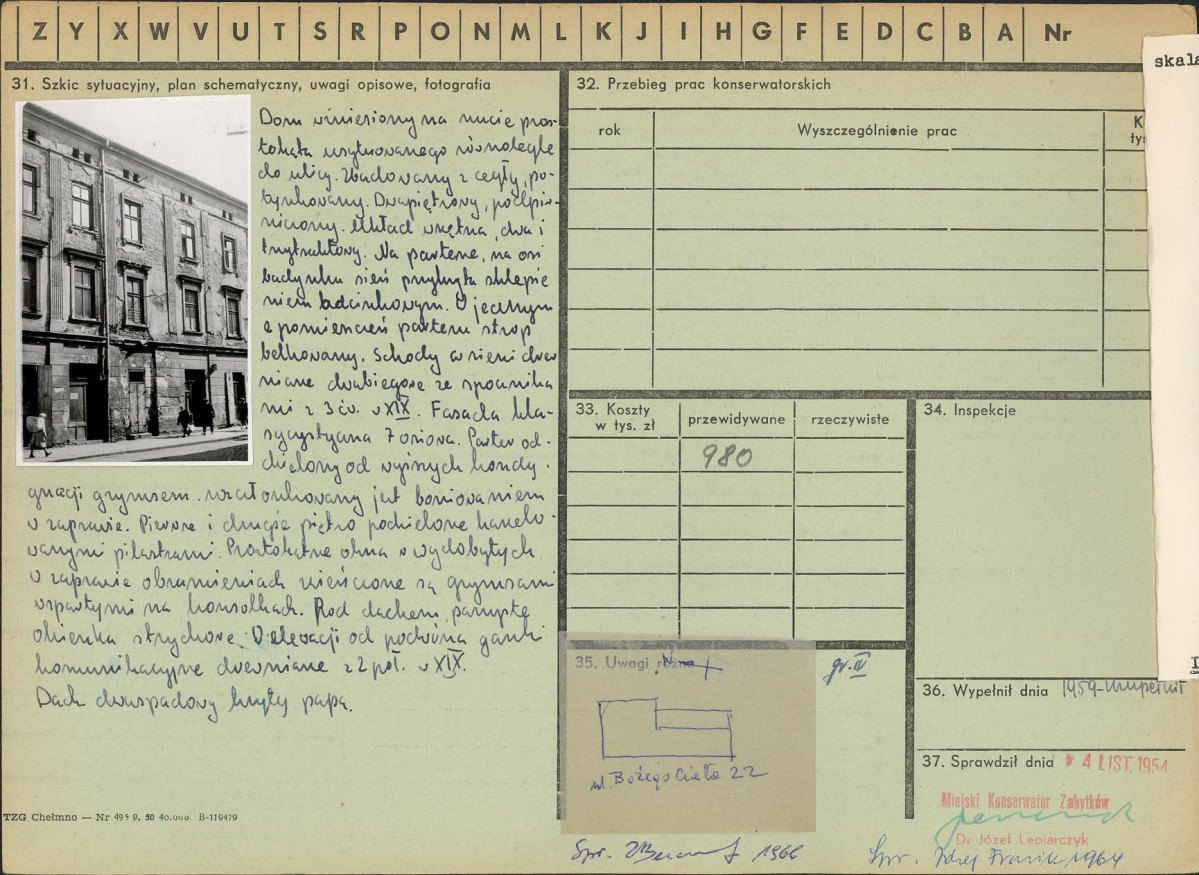 Z Y X W V U T S R P O N M L K J I H G F E D C B A Nr
skala
31. Szkic sytuacyjny, plan schematyczny, uwagi opisowe, fotografia
Dom wniesiony na rzucie pros-
tokąta usytuowanego równolegle
do ulicy. Zbudowany z cegły, po-
tynkowany. Dwupiętrowy, podpiw-
niczony. Układ wnętrza, dwu i
trzytraktowy. Na parterze, na osi
budynku sień przykryta sklepie
niem odcinkowym. W jednym
z pomieszczeń parteru strop
belkowany. Schody w sieni drew
niane dwubiegowe ze spocznika
mi z 3 ćw. w XIX. Fasada kla-
sycystyczna 7 osiowa. Parter od-
dzielony od wyższych kondy-
gnacji gzymsem. rozczłonkowany jest boniowaniem
w zaprawie. Pierwsze i drugie piętro podzielone kanelo-
wanymi pilastrami. Prostokątne okna o wydobytych
w zaprawie obramieniach zwieńczone są gzymsami
wspartymi na konsolkach. Pod dachem
okienka strychowe. W elewacji od podwórza ganki
komunikacyjne drewniane z 2 poł. w XIX.
Dach dwuspadowy kryty papą.
TZG Chełmno — Nr 495 9. 50 40.000 B-119479
32. Przebieg prac konserwatorskich
rok
Wyszczególnienie prac
K
tys
33. Koszty
w tys. zł
przewidywane
rzeczywiste
980
34. Inspekcje
35. Uwagi różne
gr. IV
ul. Bożego Ciała 22
36. Wypełnił dnia 1959
37. Sprawdził dnia 4 LIST. 1954
Miejski Konserwator Zabytków
Dr Józef Lepiarczyk
Spr. 1966
Spr. Józef Frazik 1964